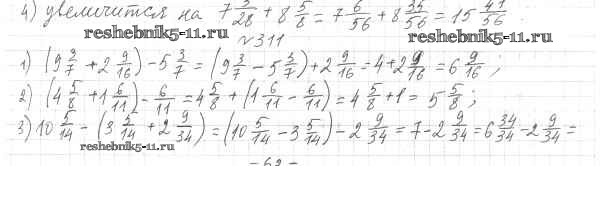 4) увеличится на 7 3/28 + 8 5/8 = 7 6/56 + 8 35/56 = 15 41/56.
reshebnik5-11.ru
№311
reshebnik5-11.ru
1) (9 3/7 + 2 9/16) - 5 3/7 = (9 3/7 - 5 3/7) + 2 9/16 = 4 + 2 9/16 = 6 9/16 ;
2) (4 5/8 + 1 6/11) - 6/11 = 4 5/8 + (1 6/11 - 6/11) = 4 5/8 + 1 = 5 5/8 ;
3) 10 5/14 - (3 5/14 + 2 9/34) = (10 5/14 - 3 5/14) - 2 9/34 = 7 - 2 9/34 = 6 34/34 - 2 9/34 =
reshebnik5-11.ru